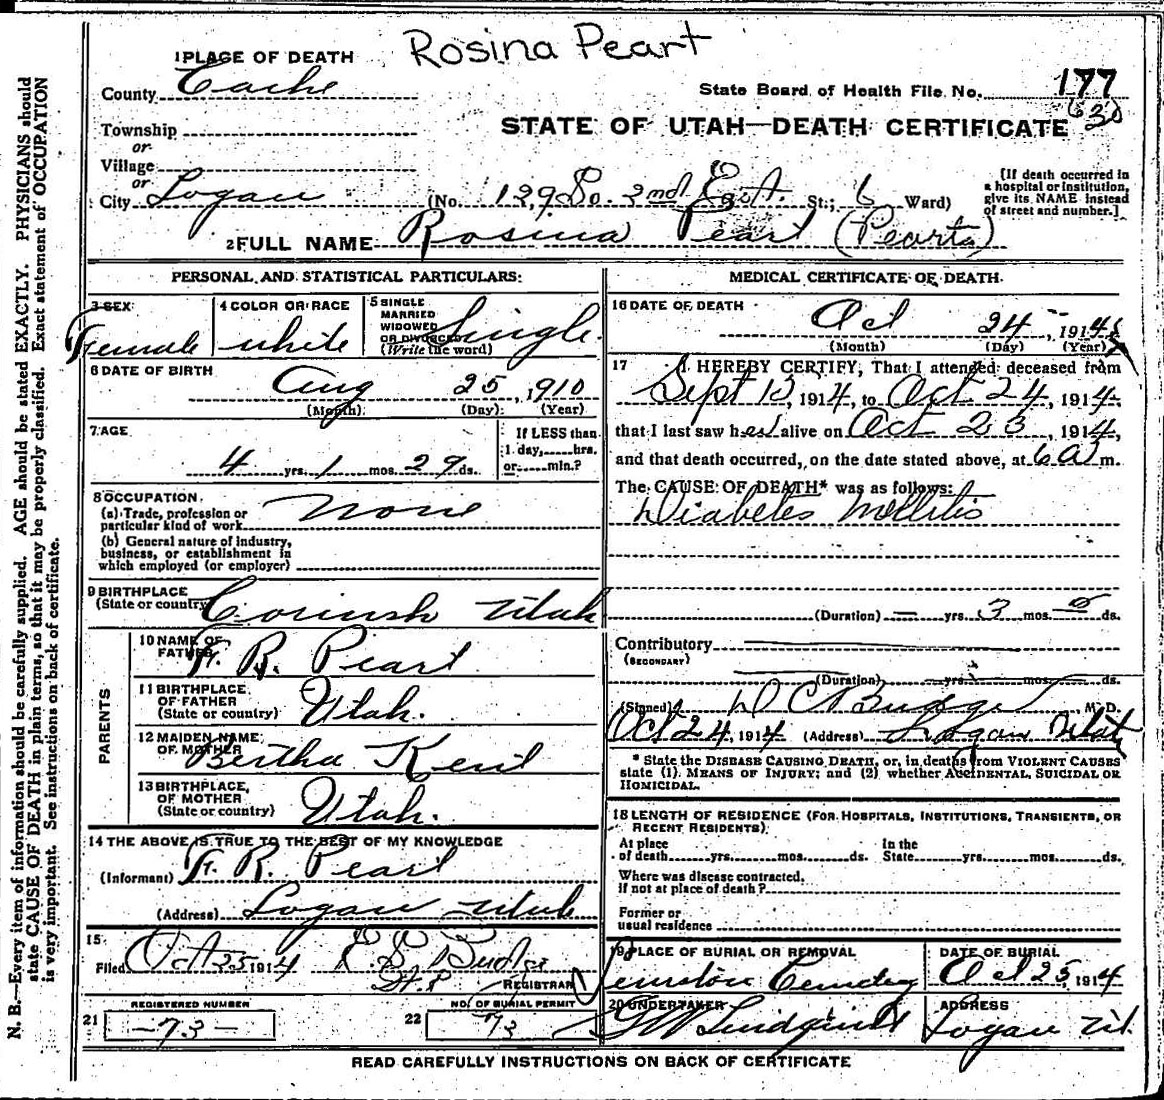 Rosina Peart
1 PLACE OF DEATH
County Cache
State Board of Health File No. 177
630
Township
or
STATE OF UTAH—DEATH CERTIFICATE
Village
or
City Logan (No. 129 So. 2nd East. St.; 6 Ward)
[If death occurred in a hospital or institution, give its NAME instead of street and number.]
2 FULL NAME Rosina Peart (Pearts)
PERSONAL AND STATISTICAL PARTICULARS:
3 SEX Female
4 COLOR OR RACE white
5 SINGLE MARRIED WIDOWED OR DIVORCED (Write the word) Single
6 DATE OF BIRTH
Aug 25, 1910
(Month) (Day) (Year)
7 AGE
4 yrs. 1 mos. 29 ds.
If LESS than 1 day, hrs. or min.?
8 OCCUPATION
(a) Trade, profession or particular kind of work None
(b) General nature of industry, business, or establishment in which employed (or employer)
9 BIRTHPLACE
(State or country) Cornish Utah
PARENTS
10 NAME OF FATHER F. R. Peart
11 BIRTHPLACE OF FATHER (State or country) Utah.
12 MAIDEN NAME OF MOTHER Bertha
13 BIRTHPLACE OF MOTHER (State or country) Utah.
14 THE ABOVE IS TRUE TO THE BEST OF MY KNOWLEDGE
(Informant) F. R. Peart
(Address) Logan Utah
15
Filed Oct 25 1914
REGISTRAR
REGISTERED NUMBER
21 —73—
NO. OF BURIAL PERMIT
22 73
MEDICAL CERTIFICATE OF DEATH
16 DATE OF DEATH
Oct 24, 1914
(Month) (Day) (Year)
17 I HEREBY CERTIFY, That I attended deceased from
Sept 13, 1914, to Oct 24, 1914
that I last saw her alive on Oct 23, 1914,
and that death occurred, on the date stated above, at 6 a m.
The CAUSE OF DEATH* was as follows:
Diabetes Mellitis
(Duration) — yrs. 3 mos. ds.
Contributory
(SECONDARY)
(Duration) yrs. mos. ds.
(Signed) D C Budge M. D.
Oct 24, 1914 (Address) Logan Utah
* State the DISEASE CAUSING DEATH, or, in deaths from VIOLENT CAUSES
state (1) MEANS OF INJURY; and (2) whether ACCIDENTAL, SUICIDAL OR
HOMICIDAL.
18 LENGTH OF RESIDENCE (FOR HOSPITALS, INSTITUTIONS, TRANSIENTS, OR
RECENT RESIDENTS)
At place of death yrs. mos. ds. In the State yrs. mos. ds.
Where was disease contracted, if not at place of death?
Former or usual residence
19 PLACE OF BURIAL OR REMOVAL
Lewiston Cemetery
DATE OF BURIAL
Oct 25, 1914
20 UNDERTAKER
Lindquist
ADDRESS
Logan Ut.
READ CAREFULLY INSTRUCTIONS ON BACK OF CERTIFICATE
N. B.—Every item of information should be carefully supplied. AGE should be stated EXACTLY. PHYSICIANS should
state CAUSE OF DEATH in plain terms, so that it may be properly classified. Exact statement of OCCUPATION
is very important. See instructions on back of certificate.